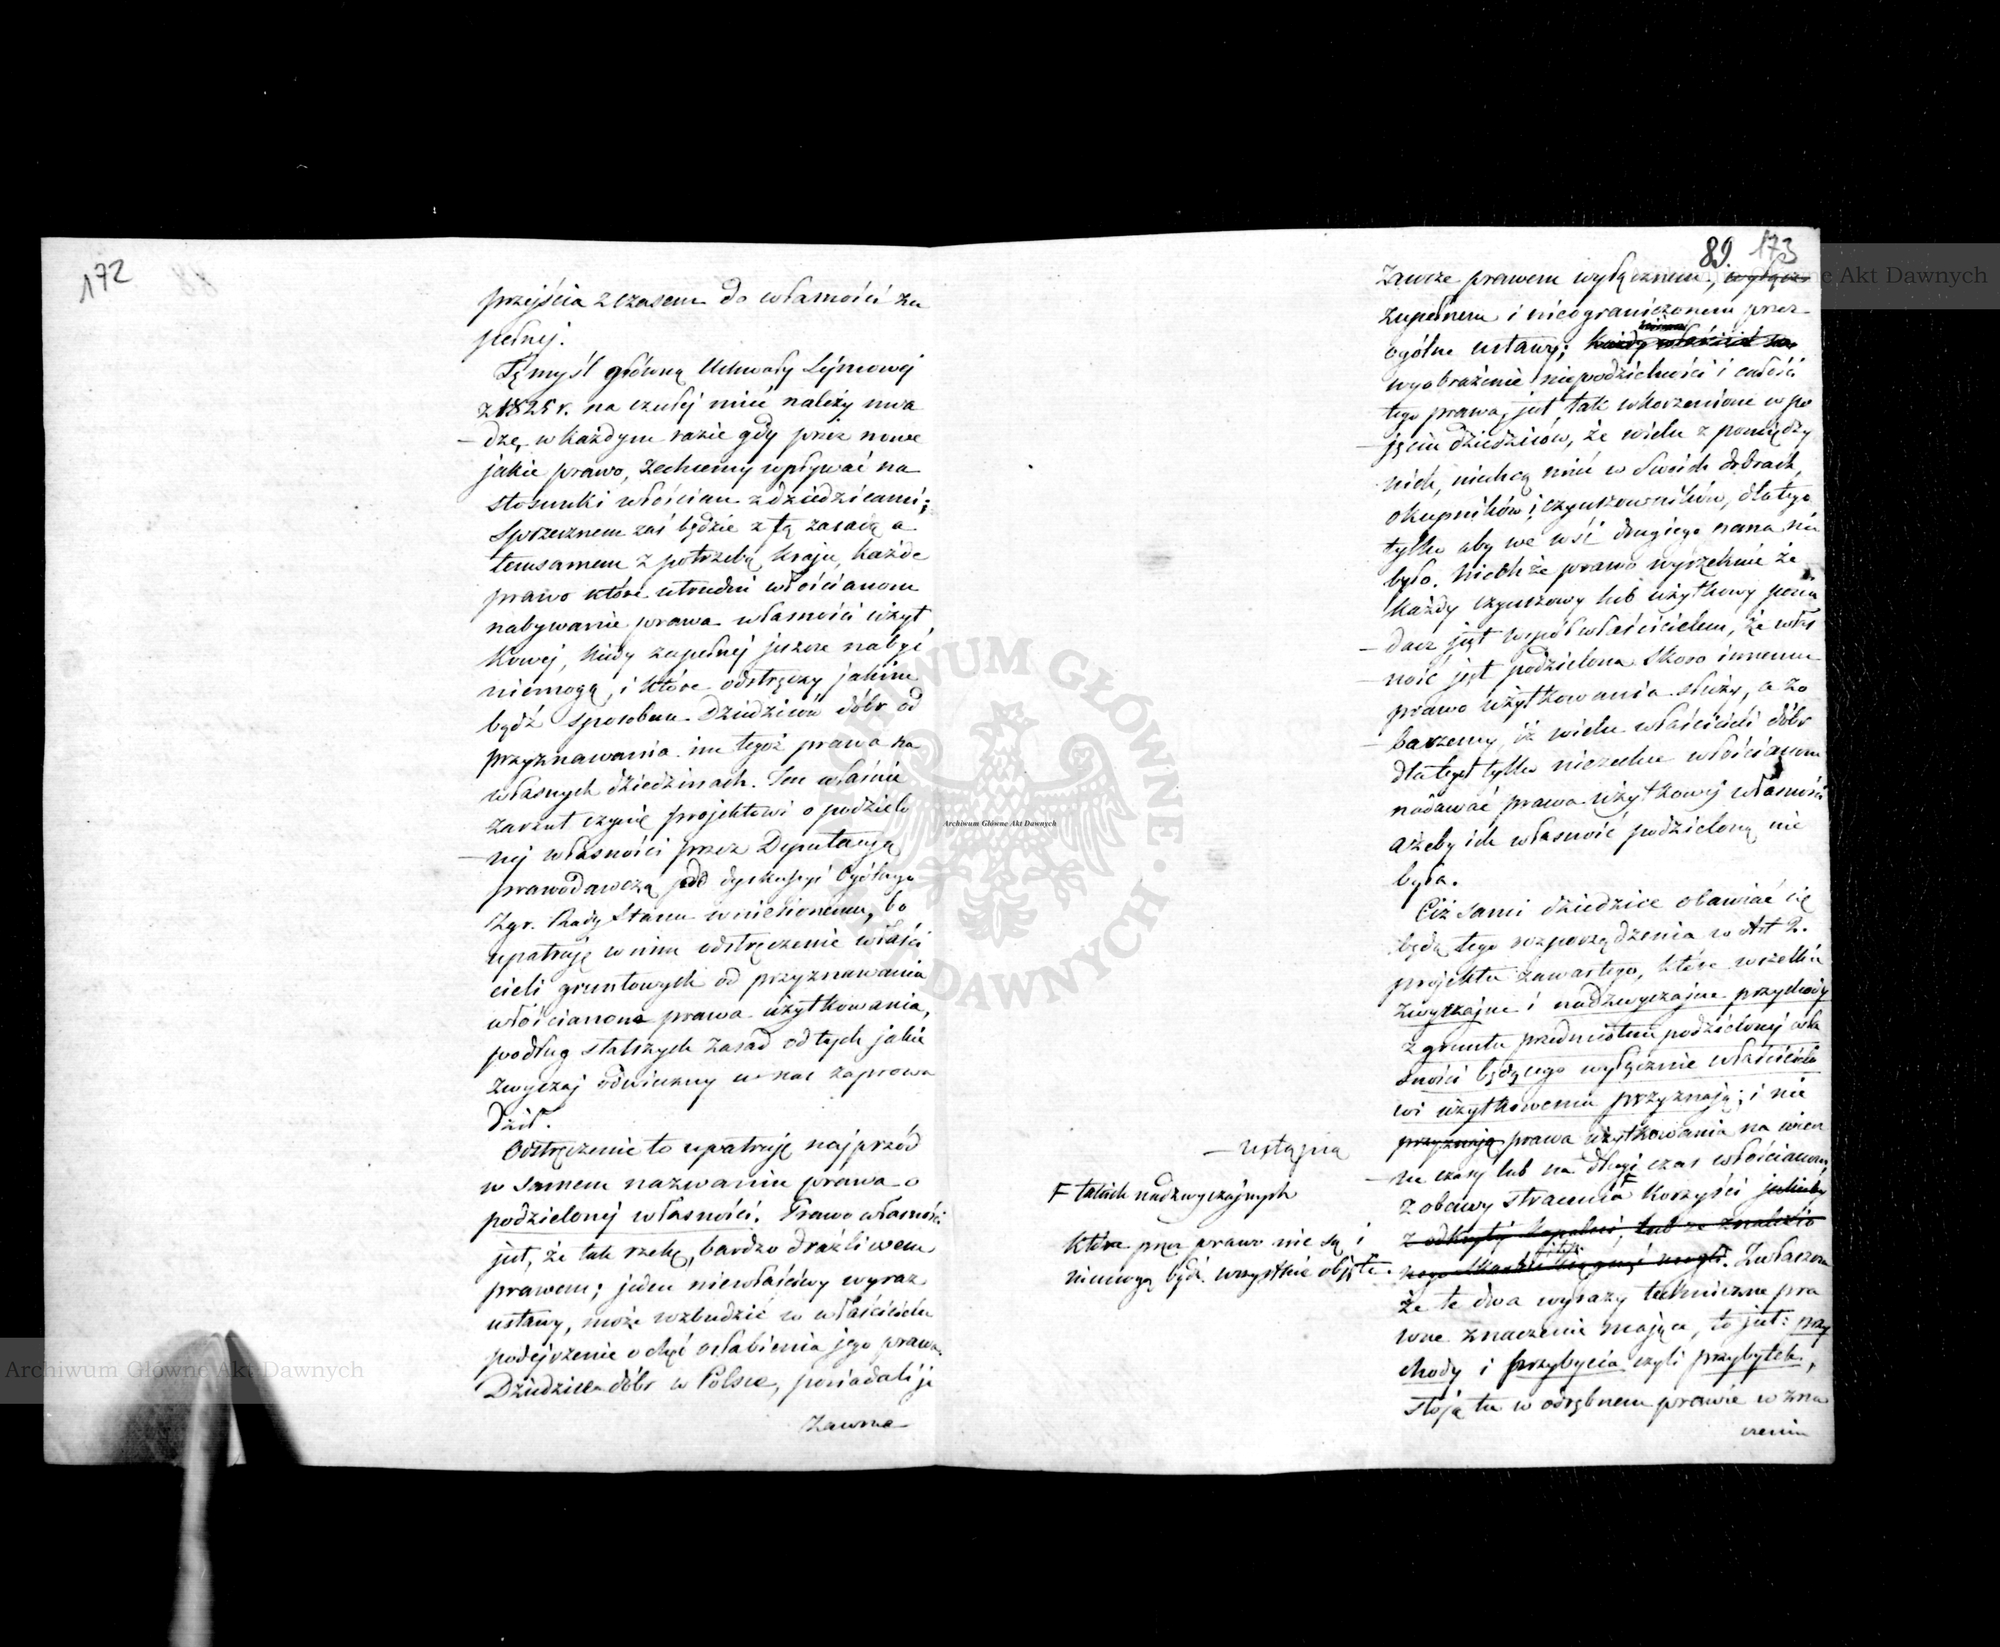 172
przejścia z czasem do własności zu
pełnej.
Tę myśl główną Uchwały Sejmowej
z 1825 r. na czułej mieć należy uwa
dze, w każdym razie gdy przez nowe
jakie prawo, zechcemy wpływać na
stosunki włościan z dziedzicami;
Sprzecznem zaś będzie z tą zasadą a
temsamem z potrzebą kraju, każde
prawo które utrudni włościanom
nabywanie prawa własności użyt
kowej, kiedy zupełnej jeszcze nabyć
niemogą, i które odstręczy jakim
bądź sposobem Dziedziców dóbr od
przyznawania im tegoż prawa na
własnych dziedzinach. Ten właśnie
zarzut czynię projektowi o podzielo
nej własności przez Deputacyą
prawodawczą pod dyskussyi Ogólnego
Zgr. Rady Stanu wniesionemu, bo
upatruję w nim odstręczenie właści
cieli gruntowych od przyznawania
włościanom prawa użytkowania,
podług stalszych zasad od tych jakie
zwyczaj odwieczny u nas zaprowa
dził.
Odstręczenie to upatruję najprzód
w samem nazwaniu prawa o
podzielonej własności. Prawo własności
jest, że tak rzekę, bardzo draźliwem
prawem; jeden niewłaściwy wyraz
ustawy, może wzbudzić w właścicielu
podejrzenie o chęć osłabienia jego prawa.
Dziedzice dóbr w Polsce, posiadali je
zawsze
89. 173
zawsze prawem wyłącznem,
zupełnem i nieograniczonem przez
ogólne ustawy;
wyobrażenie niepodzielności i całości
tego prawa, jest tak wkorzenione w po
jęciu dziedziców, że wielu z pomiędzy
nich, niechcą mieć w swoich dobrach,
okupników i czynszowników, dla tego
tylko aby we wsi drugiego pana nie
było. Niechże prawo wyrzeknie że
każdy czynszowy lub użytkowy posia
dacz jest współwłaścicielem, że włas
ność jest podzielona skoro innemu
prawo użytkowania służy, a zo
baczemy, iż wielu właścicieli dóbr
dla tego tylko niezechce włościanom
nadawać prawa użytkowej własności
ażeby ich własność podzieloną nie
była.
Ciż sami dziedzice obawiać się
będą tego rozporządzenia w Art 2.
projektu zawartego, które wszelkie
zwyczajne i nadzwyczajne przychody
z gruntu przedmiotem podzielonej wła
sności będącego wyłącznie właścicielo
wi użytkowemu przyznają; i nie
ustąpią
przyznają prawa użytkowania na wiecz
ne czasy lub na długi czas włościanom,
z obawy stracenia F korzyści jakieby
F takich nadzwyczajnych
które przez prawo nie są i
niemogą być wszystkie objęte.
z odkrytej kopalni, lub ze znalezio
Zwłaszcza
że te dwa wyrazy techniczne pra
wne znaczenie mające, to jest: przy
chody i przybycia czyli przybytek,
stoją tu w odrębnem prawie w zna
czeniu